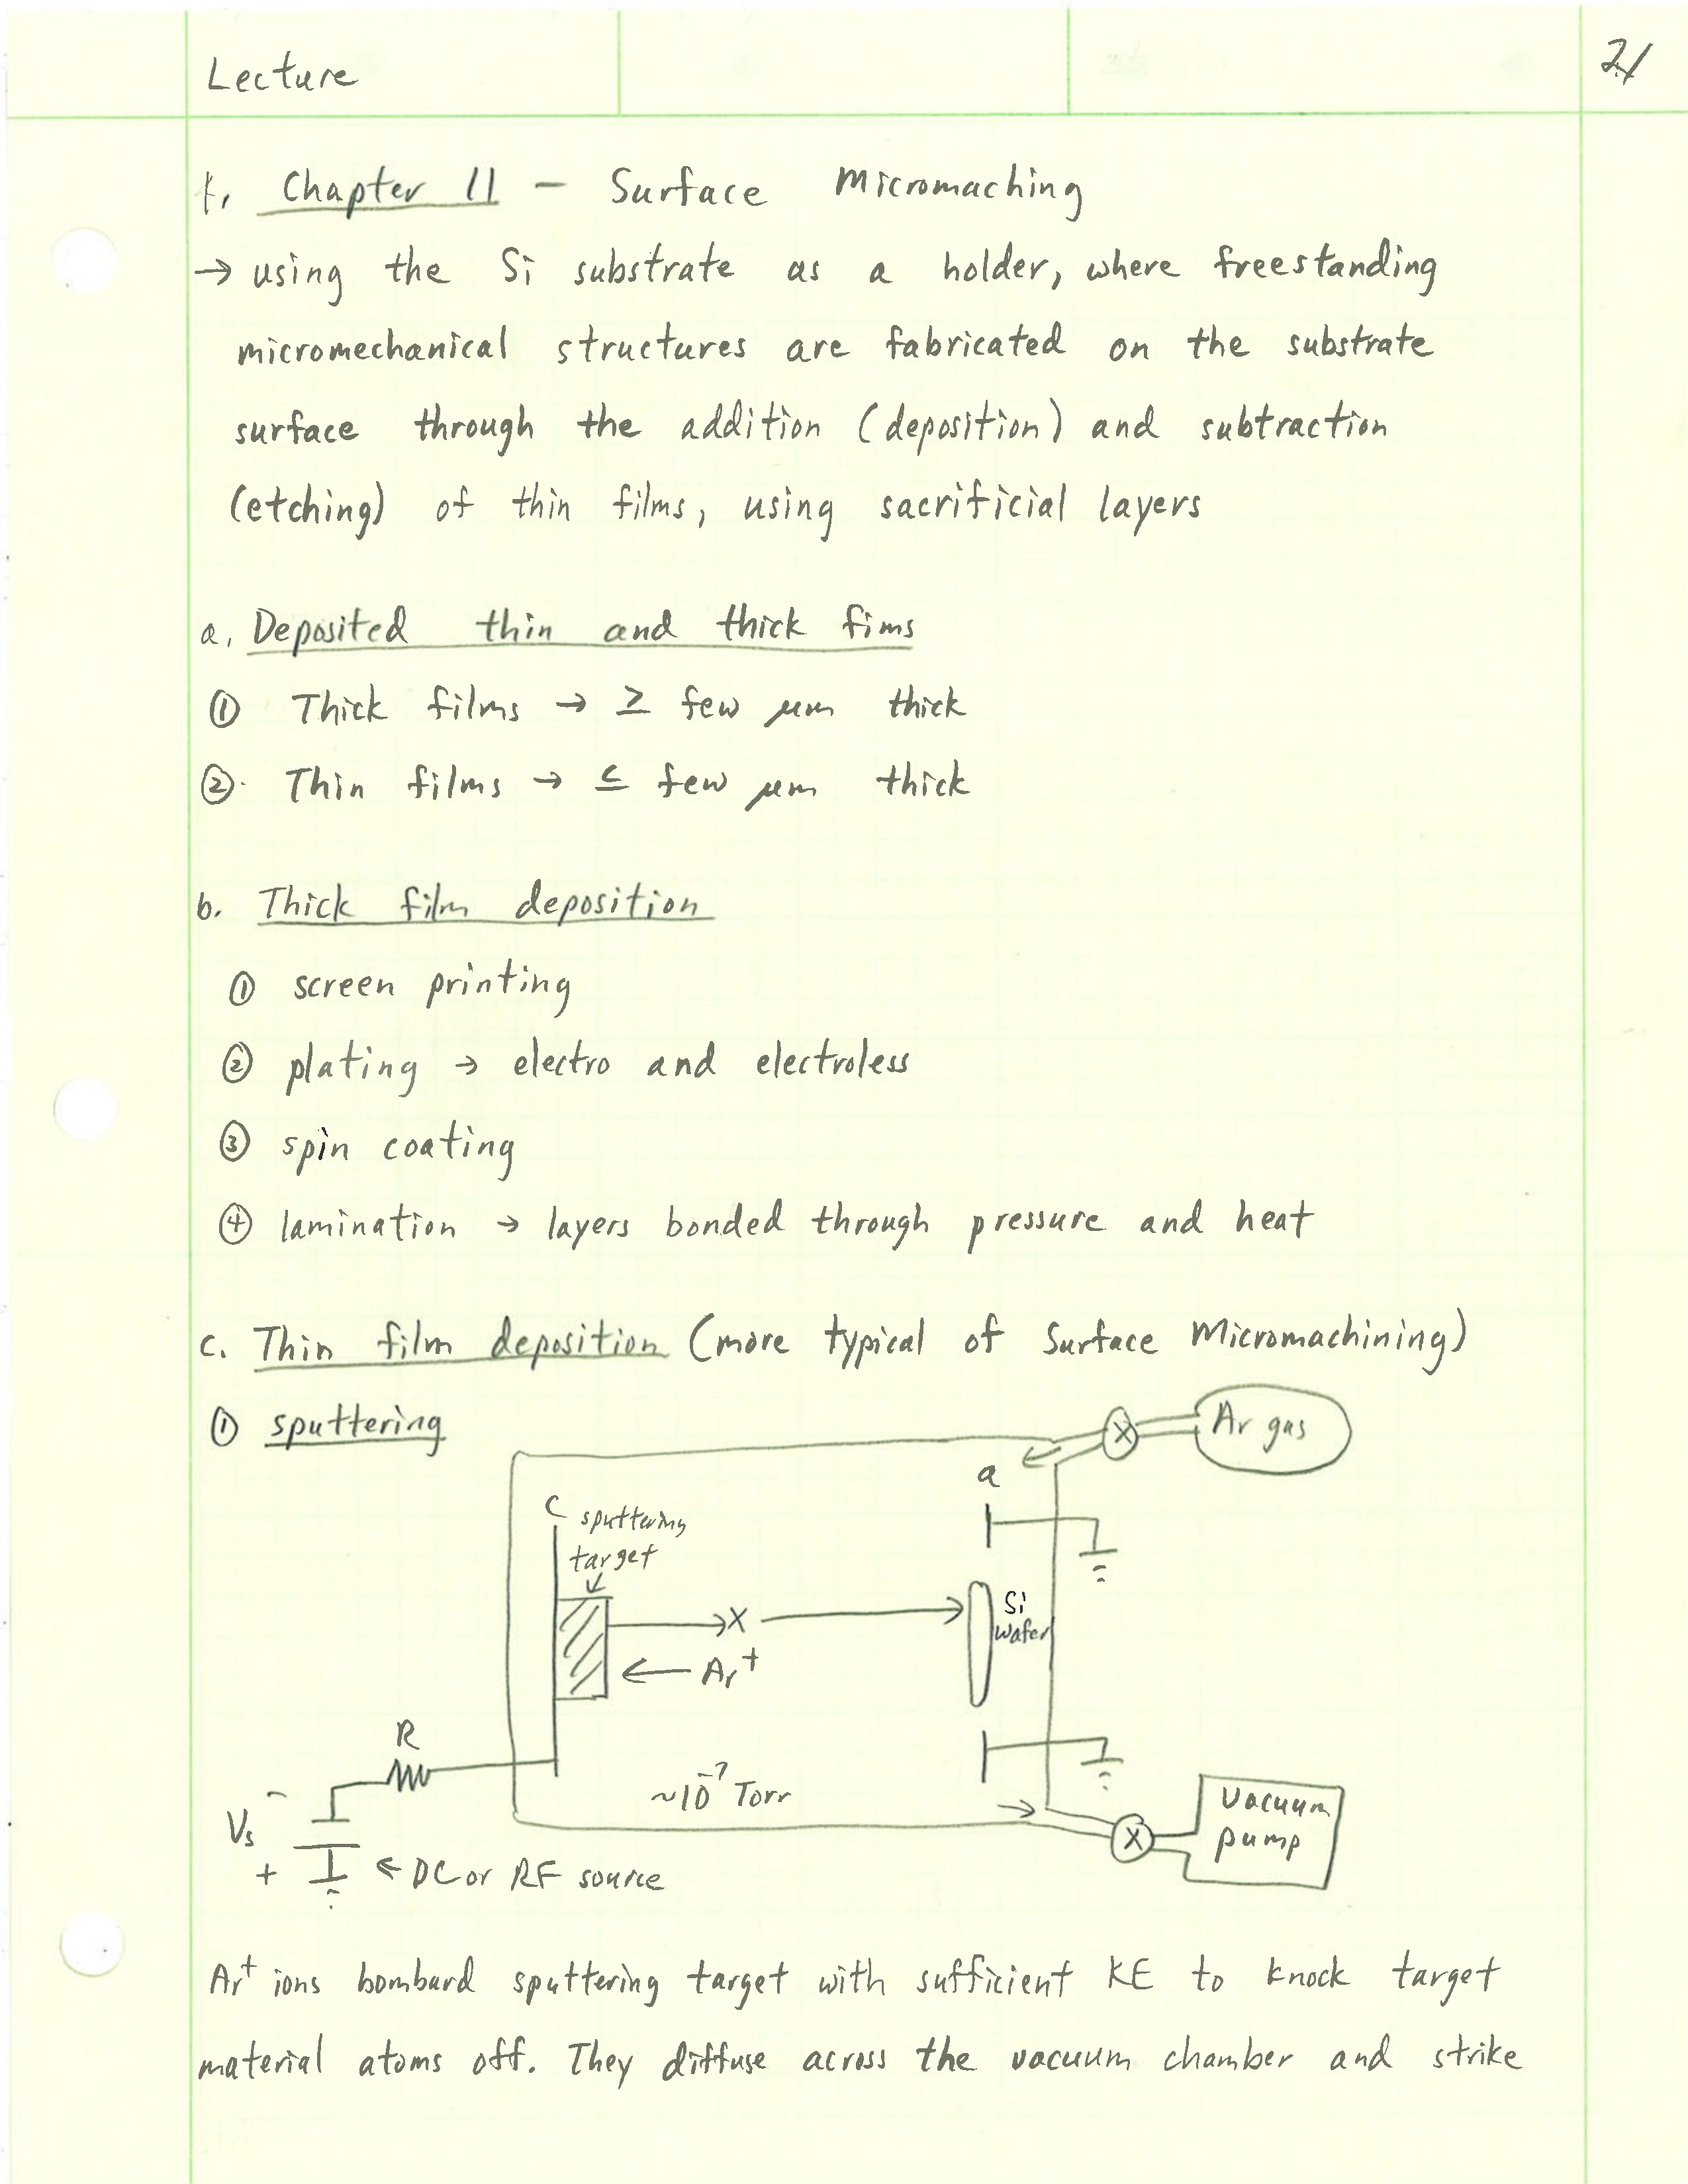 Lecture
21
1. Chapter 11 - Surface Micromaching
→ using the Si substrate as a holder, where freestanding
micromechanical structures are fabricated on the substrate
surface through the addition (deposition) and subtraction
(etching) of thin films, using sacrificial layers
a. Deposited thin and thick fims
① Thick films → ≥ few μm thick
② Thin films → ≤ few μm thick
b. Thick film deposition
① screen printing
② plating → electro and electroless
③ spin coating
④ lamination → layers bonded through pressure and heat
c. Thin film deposition (more typical of Surface Micromachining)
① sputtering
Ar gas
X
a
C sputtering
target
X
Si
wafer
Ar⁺
R
~10⁻⁷ Torr
Vacuum
pump
X
-
Vs
+
← DC or RF source
Ar⁺ ions bombard sputtering target with sufficient KE to knock target
material atoms off. They diffuse across the vacuum chamber and strike